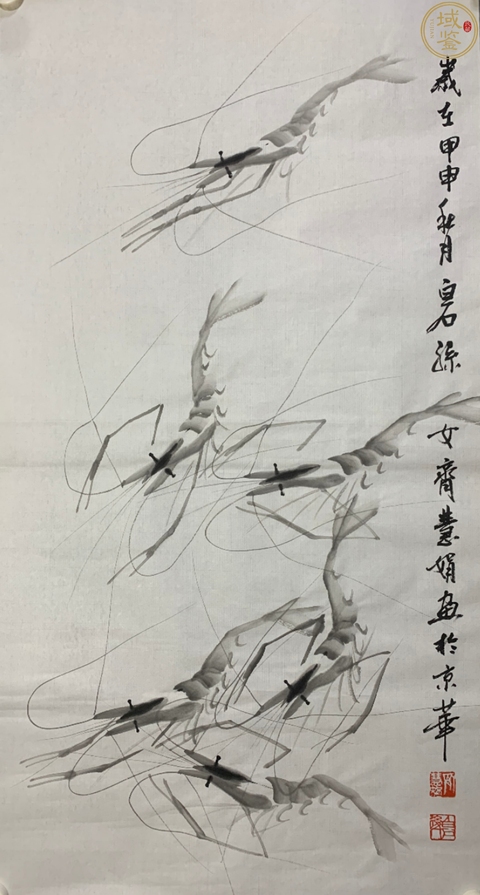 域鉴
岁在甲申秋月白石孙女齊慧娟画於京華